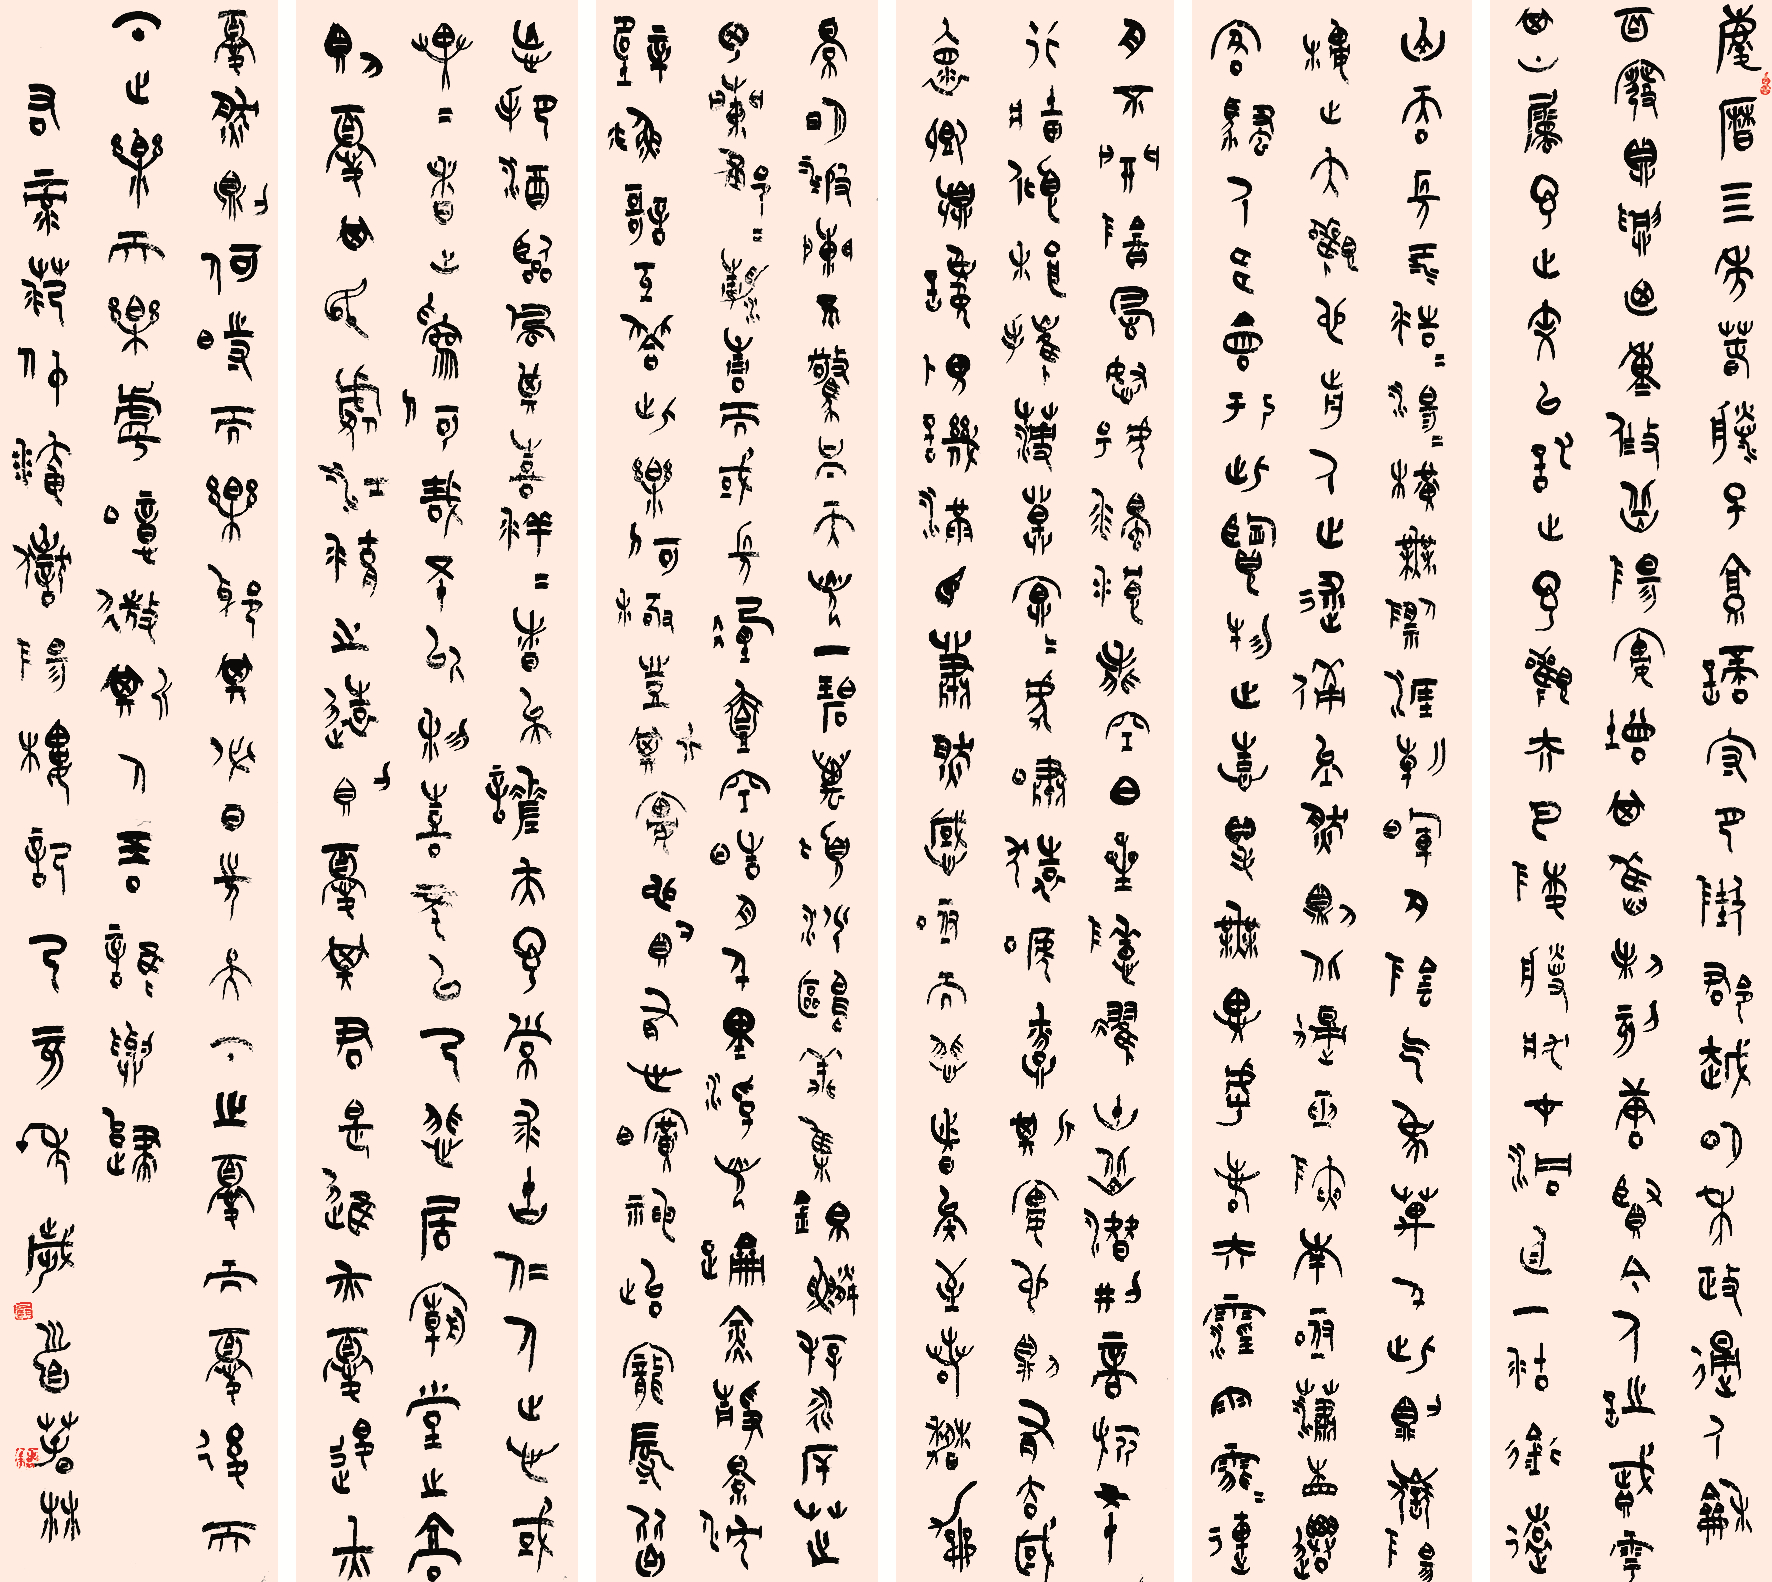 慶曆四年春滕子京謫守巴陵郡越明年政通人和
百廢具興乃重修岳陽樓增其舊制刻唐賢今人詩賦於
其上屬予作文以記之予觀夫巴陵勝狀在洞庭一湖銜遠
山吞長江浩浩湯湯橫無際涯朝暉夕陰氣象萬千此則岳陽
樓之大觀也前人之述備矣然則北通巫峽南極瀟湘遷
客騷人多會於此覽物之情得無異乎若夫霪雨霏霏連
月不開陰風怒號濁浪排空日星隱曜山岳潛形商旅不
行檣傾楫摧薄暮冥冥虎嘯猿啼登斯樓也則有去國
懷鄉憂讒畏譏滿目蕭然感極而悲者矣至若春和
景明波瀾不驚上下天光一碧萬頃沙鷗翔集錦鱗游泳岸芷
汀蘭郁郁青青而或長煙一空皓月千里浮光躍金靜影沉
璧漁歌互答此樂何極登斯樓也則有心曠神怡寵辱偕
忘把酒臨風其喜洋洋者矣嗟夫予嘗求古仁人之心或
異二者之為何哉不以物喜不以己悲居廟堂之高
則憂其民處江湖之遠則憂其君是進亦憂退亦
憂然則何時而樂耶其必曰先天下之憂而憂後天
下之樂而樂乎噫微斯人吾誰與歸
右范仲淹岳陽樓記